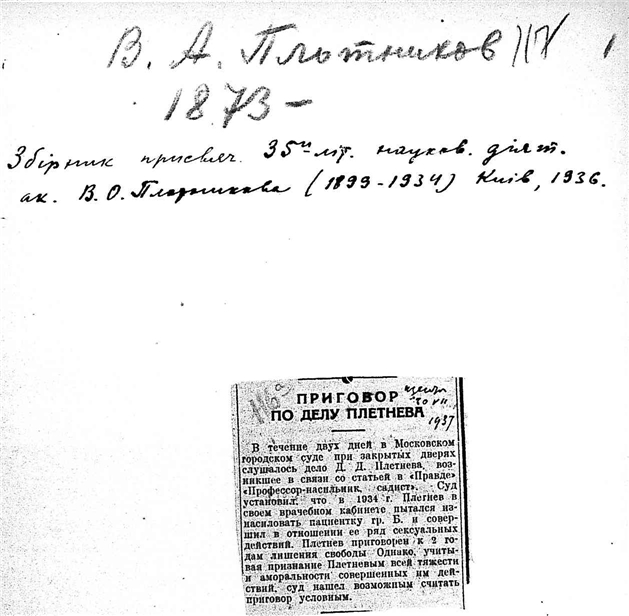 В. А. Плотников
1873 –
Збірник присвяч. 35и літ. науков. діят.
ак. В. О. Плотникова (1899-1934) Київ, 1936.
ПРИГОВОР
ПО ДЕЛУ ПЛЕТНЕВА
20 VII
1937
В течение двух дней в Московском
городском суде при закрытых дверях
слушалось дело Д. Д. Плетнева, воз-
никшее в связи со статьей в «Правде»
«Профессор-насильник, садист». Суд
установил, что в 1934 г. Плетнев в
своем врачебном кабинете пытался из-
насиловать пациентку гр. Б. и совер-
шил в отношении ее ряд сексуальных
действий. Плетнев приговорен к 2 го-
дам лишения свободы Однако, учиты-
вая признание Плетневым всей тяжести
и аморальности совершенных им дей-
ствий, суд нашел возможным считать
приговор условным.